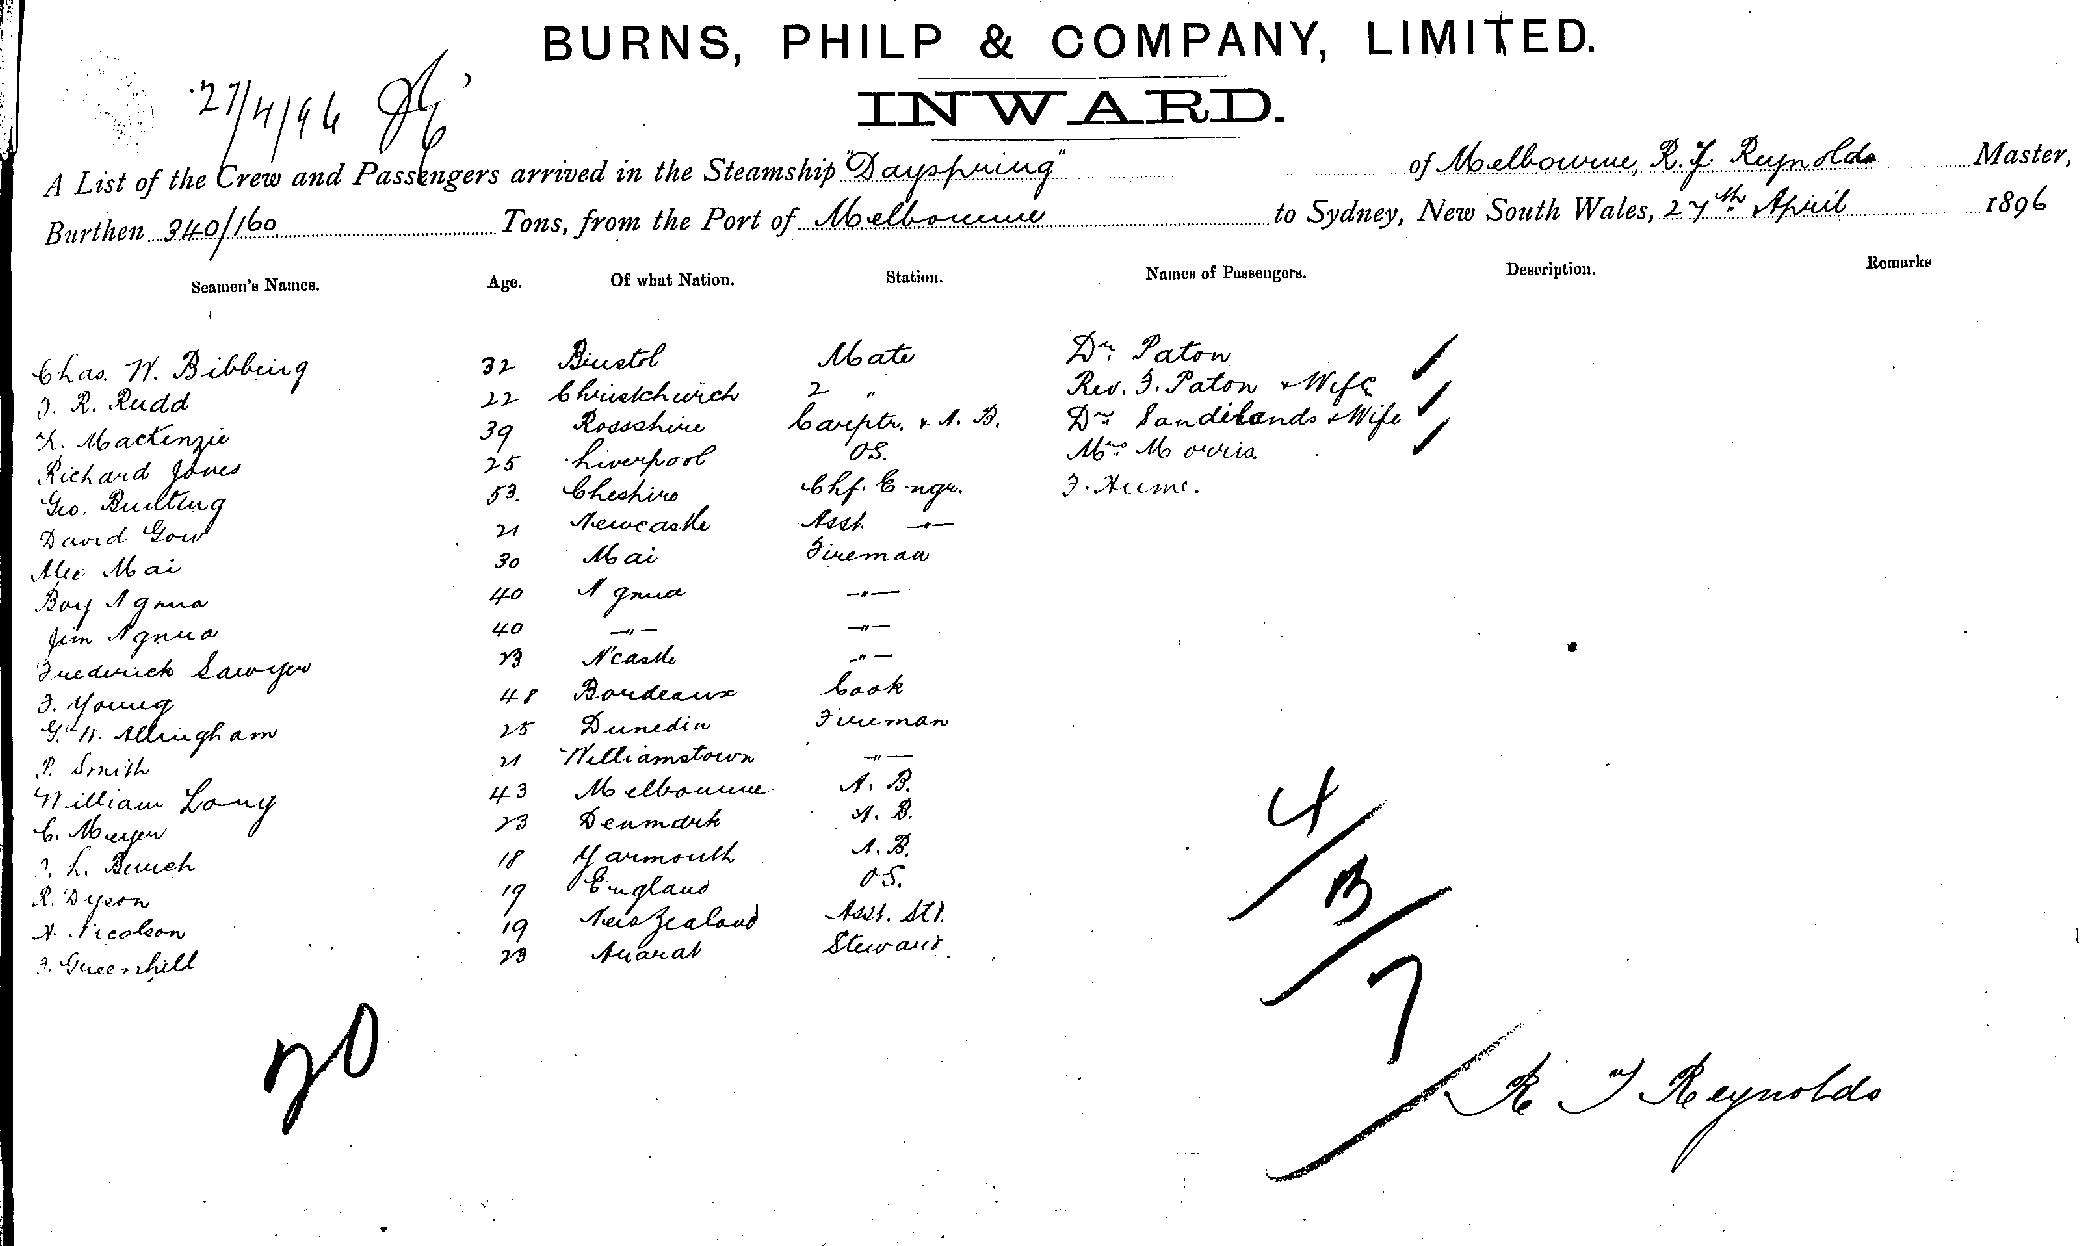 BURNS, PHILP & COMPANY, LIMITED.
27/4/96
INWARD.
A List of the Crew and Passengers arrived in the Steamship "Dayspring" of Melbourne, R. J. Reynolds Master,
Burthen 340/160 Tons, from the Port of Melbourne to Sydney, New South Wales, 27th April 1896
Seamen's Names. Age. Of what Nation. Station. Names of Passengers. Description. Remarks
Chas. W. Bibbing 32 Bristol Mate Dr. Paton
J. R. Rudd 22 Christchurch 2 " Rev. F. Paton & Wife
K. Mackenzie 39 Rossshire Carptr. & A. B. Dr. Sandilands & Wife
Richard Jones 25 Liverpool OS. Mrs Morris
Geo. Builting 53. Cheshire Chf. Engr. J. Hume.
David Gow 21 Newcastle Asst. —"—
Alec Mai 30 Mai Fireman
Boy Agnua 40 Agnua —"—
Jim Agnua 40 —"— —"—
Frederick Sawyer 23 N'castle —"—
J. Young 48 Bordeaux Cook
G. W. Allingham 25 Dunedin Fireman
P. Smith 21 Williamstown —"—
William Long 43 Melbourne A. B.
C. Meyer 23 Denmark A. B.
L. Bunch 18 Yarmouth A. B.
R. Dyson 19 England OS.
A. Nicolson 19 New Zealand Asst. Std.
J. Greenhill 23 Ararat Steward.
20
4/13/7/
R J Reynolds